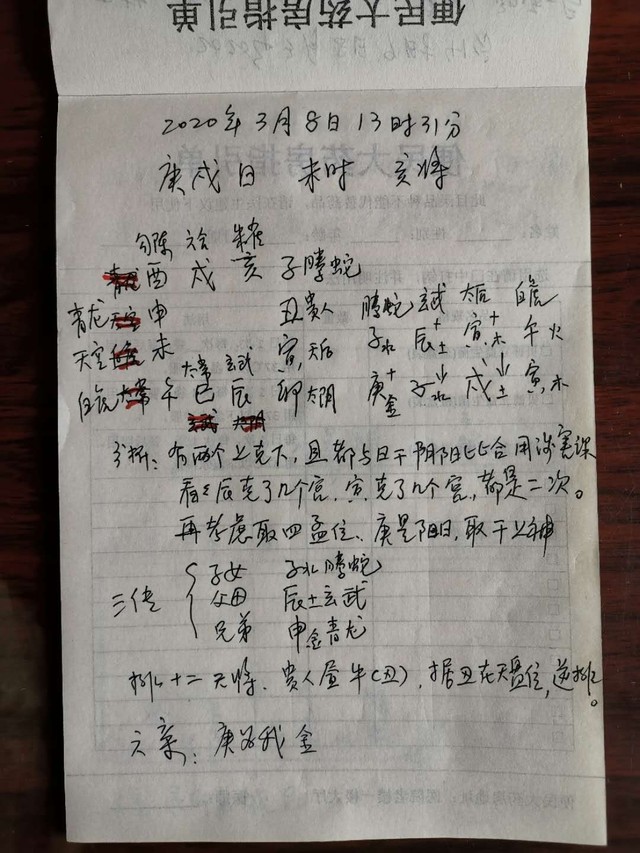 便民大药房指引单
2020年3月8日13时31分
庚戌日 未时 亥将
勾陈 六合 朱雀
青龙 酉 戌 亥 子腾蛇
青龙 天空 申 丑贵人 腾蛇 玄武 天后 白虎
天空 白虎 未 寅天后 子水 辰土 寅木 午火
太常 玄武
白虎 太常 午 巳 辰 卯太阴 庚金 子水 戌土 寅木
玄武 太阴
分析：有两个上克下，且都与日干阴阳比合用涉害课
看辰克了几个宫，寅克了几个宫，都是二次。
再考虑取四孟位、庚是阳日，取干上神
三传 子女 子水腾蛇
父母 辰土玄武
兄弟 申金青龙
排十二天将、贵人昼牛(丑)，据丑在天盘位，逆排。
六亲：庚为我 金